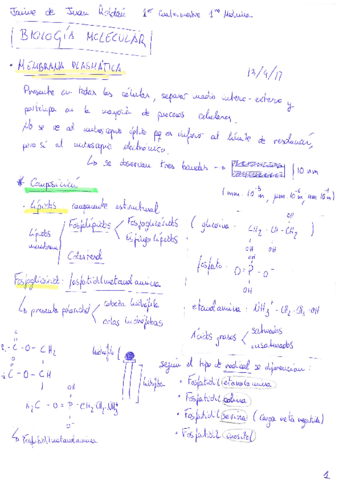 Jaime de Juan Roldán 1er Cuatrimestre 1ro Medicina
BIOLOGÍA MOLECULAR
• MEMBRANA PLASMÁTICA
13/9/17
Presente en todas las células, separa medio intero-externo y
participa en la mayoría de procesos celulares.
No se ve al microscopio óptico pq es inferior al límite de resolución,
pero sí al microscopio electrónico.
↳ se observan tres bandas → 10 nm
* Composición
- Lípidos: componente estructural
Lípidos
Fosfolípidos
Fosfoglicéridos
Esfingolípidos
Colesterol
glicerina:
OH
CH2-CH-CH2
OH OH
Fosfoglicérido: fosfatidiletanolamina
fosfato:
OH
O=P-O-
OH
↳ presenta polaridad
cabeza hidrófila
colas hidrófobas
etanolamina: NH3+-CH2-CH2-OH
Ácidos grasos
saturados
insaturados
C-O-CH2
C-O-CH
OH
H2C-O-P-
↳ Fosfatidiletanolamina
según el tipo de radical se diferencian:
• Fosfatidiletanolamina
• Fosfatidilcolina
• Fosfatidilserina (carga neta negativa)
• Fosfatidilinositol
1